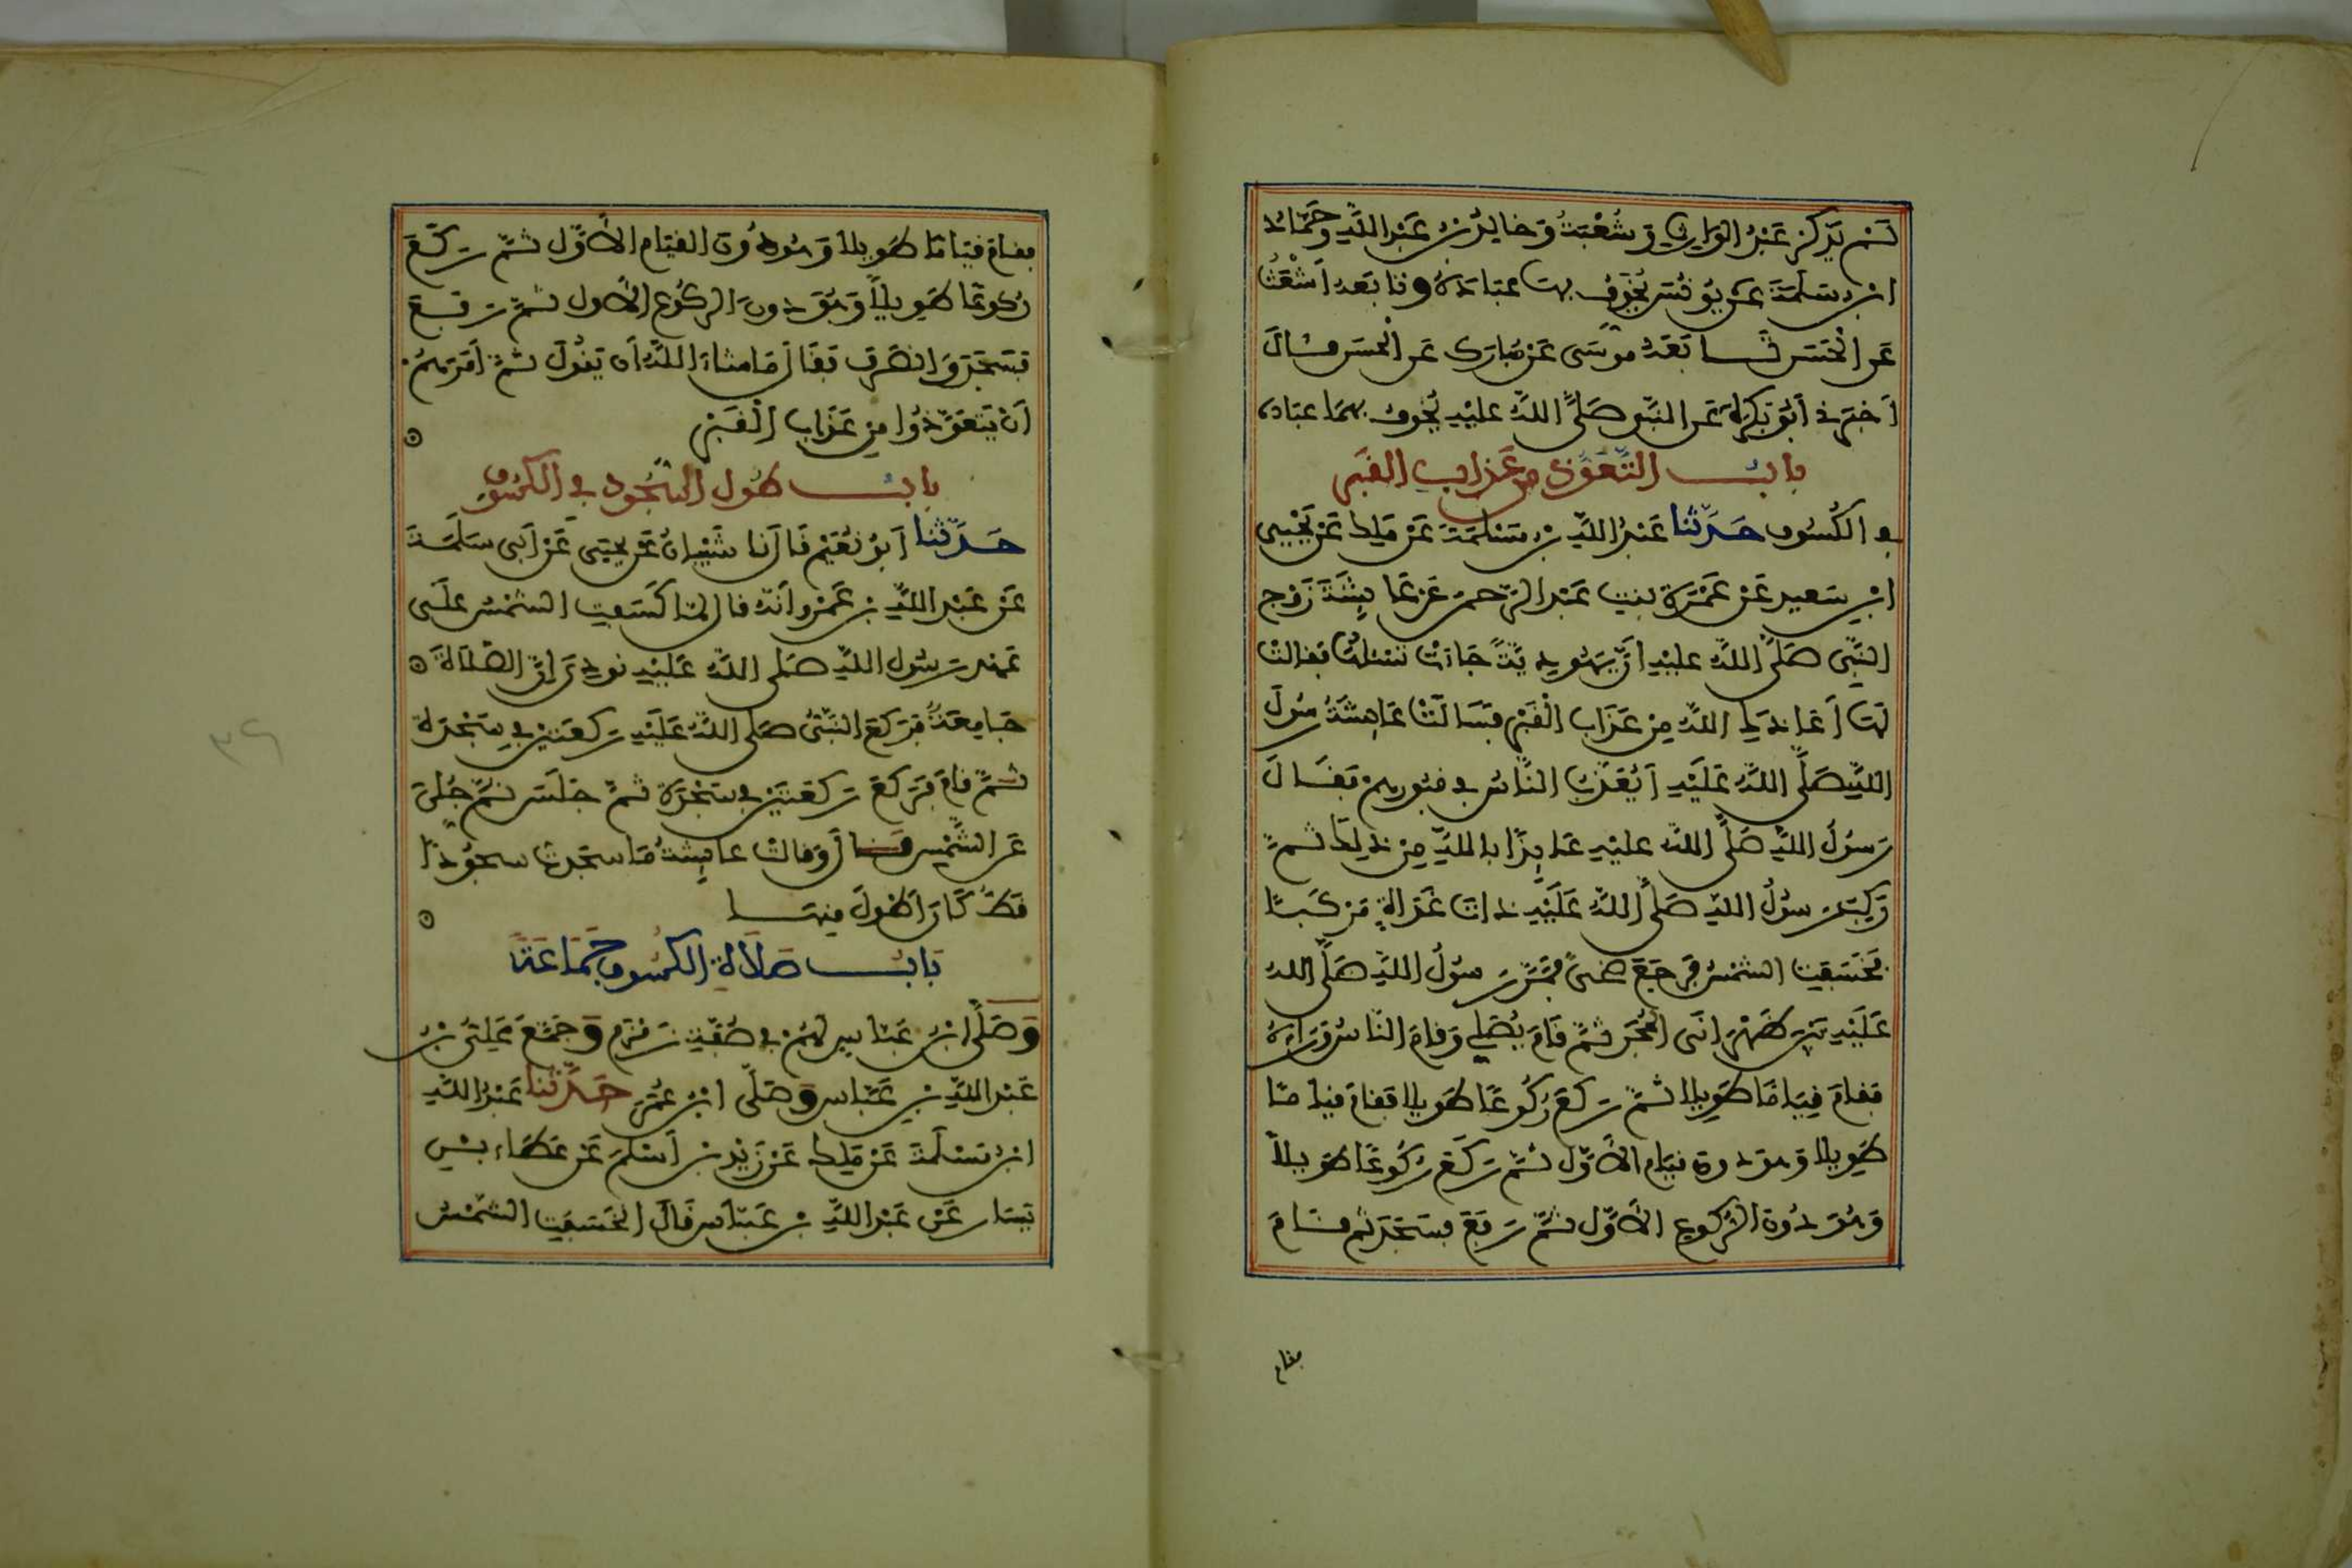 لَمْ يَذْكُرْ عَبْدُ الوَارِثِ وَشُعْبَةُ وَخَالِدُ بْنُ عَبْدِ اللَّهِ وَحَمَّادُ
ابْنُ سَلَمَةَ عَن يُونُسَ يُخَوِّفُ بِهَا عِبَادَهُ وَتَابَعَهُ أَشْعَثُ
عَنِ الْحَسَنِ وَتَابَعَهُ مُوسَى عَنْ مُبَارَكٍ عَنِ الْحَسَنِ قَالَ
أَخْبَرَنِي أَبُو بَكْرَةَ عَنِ النَّبِيِّ صَلَّى اللَّهُ عَلَيْهِ يُخَوِّفُ بِهِمَا عِبَادَهُ
بَابُ التَّعَوُّذِ مِن عَذَابِ القَبْرِ
فِي الكُسُوفِ حَدَّثَنَا عَبْدُ اللَّهِ بْنُ مَسْلَمَةَ عَنْ مَلِكٍ عَنْ يَحْيَى
ابْنِ سَعِيدٍ عَنْ عَمْرَةَ بِنْتِ عَبْدِ الرَّحْمَنِ عَنْ عَائِشَةَ زَوْجِ
النَّبِيِّ صَلَّى اللَّهُ عَلَيْهِ أَنَّ يَهُودِيَّةً جَاءَتْ تَسْئَلُهَا فَقَالَتْ
لَهَا أَعَاذَكِ اللَّهُ مِنْ عَذَابِ الْقَبْرِ فَسَأَلَتْ عَائِشَةُ رَسُولَ
اللَّهِ صَلَّى اللَّهُ عَلَيْهِ أَيُعَذَّبُ النَّاسُ فِي قُبُورِهِمْ فَقَالَ
رَسُولُ اللَّهِ صَلَّى اللَّهُ عَلَيْهِ عَائِذًا بِاللَّهِ مِنْ ذَلِكَ ثُمَّ
رَكِبَ رَسُولُ اللَّهِ صَلَّى اللَّهُ عَلَيْهِ ذَاتَ غَدَاةٍ مَرْكَبًا
فَخَسَفَتِ الشَّمْسُ فَرَجَعَ ضُحًى فَمَرَّ رَسُولُ اللَّهِ صَلَّى اللَّهُ
عَلَيْهِ بَيْنَ ظَهْرَانَيِ الْحُجَرِ ثُمَّ قَامَ يُصَلِّي وَقَامَ النَّاسُ وَرَاءَهُ
فَقَامَ قِيَامًا طَوِيلًا ثُمَّ رَكَعَ رُكُوعًا طَوِيلًا فَقَامَ قِيَامًا
طَوِيلًا وَهُوَ دُونَ قِيَامِ الأَوَّلِ ثُمَّ رَكَعَ رُكُوعًا طَوِيلًا
وَهُوَ دُونَ الرُّكُوعِ الأَوَّلِ ثُمَّ رَفَعَ فَسَجَدَ ثُمَّ قَامَ
فقام
فَقَامَ قِيَامًا طَوِيلًا وَهُوَ دُونَ القِيَامِ الأَوَّلِ ثُمَّ رَكَعَ
رُكُوعًا طَوِيلًا وَهُوَ دُونَ الرُّكُوعِ الأَوَّلِ ثُمَّ رَفَعَ
فَسَجَدَ وَانْصَرَفَ فَقَالَ مَا شَاءَ اللَّهُ أَن يَقُولَ ثُمَّ أَمَرَهُمْ
أَنْ يَتَعَوَّذُوا مِنْ عَذَابِ الْقَبْرِ
بَابُ طُولِ السُّجُودِ فِي الكُسُوفِ
حَدَّثَنَا أَبُو نُعَيْمٍ قَالَ نَا شَيْبَانُ عَن يَحْيَى عَنْ أَبِي سَلَمَةَ
عَنْ عَبْدِ اللَّهِ بْنِ عَمْرٍو أَنَّهُ قَالَ لَمَّا كَسَفَتِ الشَّمْسُ عَلَى
عَهْدِ رَسُولِ اللَّهِ صَلَّى اللَّهُ عَلَيْهِ نُودِيَ إِنَّ الصَّلَاةَ
جَامِعَةٌ فَرَكَعَ النَّبِيُّ صَلَّى اللَّهُ عَلَيْهِ رَكْعَتَيْنِ فِي سَجْدَةٍ
ثُمَّ قَامَ فَرَكَعَ رَكْعَتَيْنِ فِي سَجْدَةٍ ثُمَّ جَلَسَ ثُمَّ جُلِّيَ
عَنِ الشَّمْسِ قَالَ وَقَالَتْ عَائِشَةُ مَا سَجَدْتُ سُجُودًا
قَطُّ كَانَ أَطْوَلَ مِنْهَا
بَابُ صَلَاةِ الكُسُوفِ جَمَاعَةً
وَصَلَّى ابْنُ عَبَّاسٍ لَهُمْ فِي صُفَّةِ زَمْزَمَ وَجَمَّعَ عَلِيُّ بْنُ
عَبْدِ اللَّهِ بْنِ عَبَّاسٍ وَصَلَّى ابْنُ عُمَرَ حَدَّثَنَا عَبْدُ اللَّهِ
ابْنُ مَسْلَمَةَ عَنْ مَلِكٍ عَنْ زَيْدِ بْنِ أَسْلَمَ عَنْ عَطَاءِ بْنِ
يَسَارٍ عَنْ عَبْدِ اللَّهِ بْنِ عَبَّاسٍ قَالَ انْخَسَفَتِ الشَّمْسُ